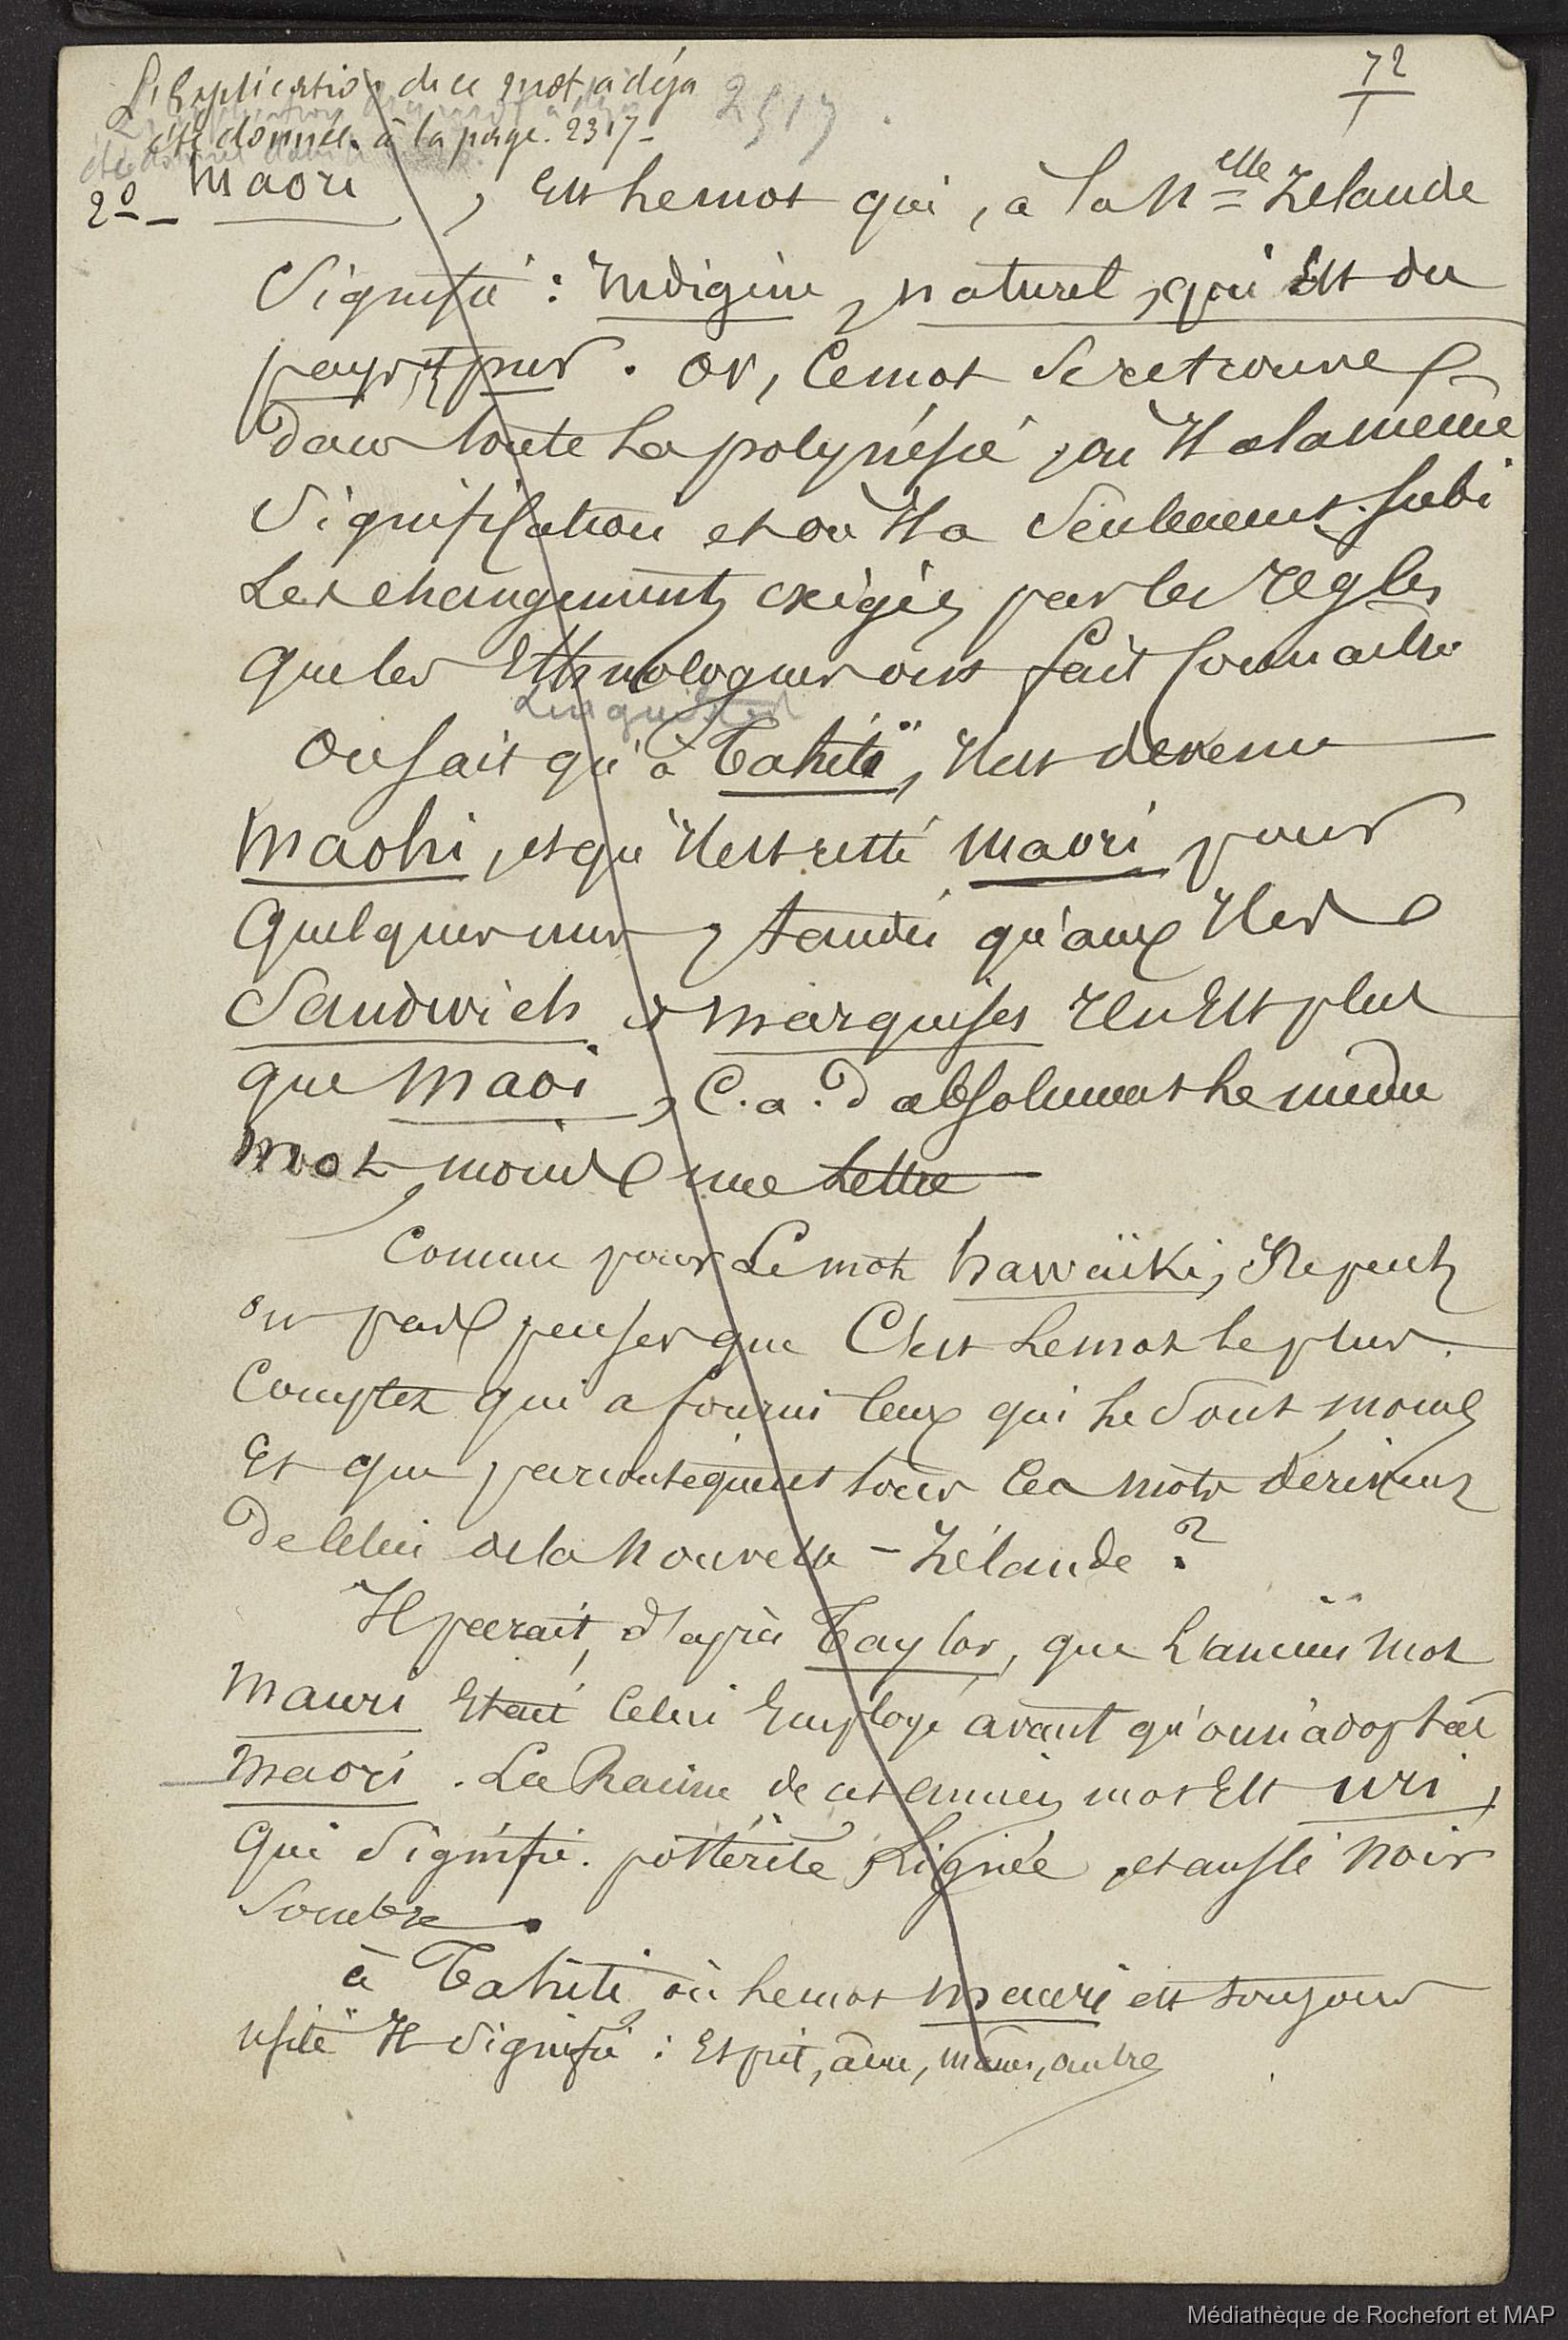 72
L'Explication de ce mot, a déja 2317.
été donnée à la page. 2317-
2º Maori, Est le mot qui, à la Nelle Zelande
Signifie : Indigène, naturel, qui Est du
pays, et pur. Or, ce mot se retrouve
dans toute la polynésie, où Il a la même
Signification et où Il a seulement subi
Les changements exigés par les règles
que les Ethnologues ont fait connaître
Linguistes
On sait qu'à Tahiti, Il est devenu
Maohi, et qu'il est resté Maori pour
quelques uns, tandis qu'aux Iles
Sandwich et Marquises Il n'Est plus
que Maoi, C.a.d absolument le même
mot, moins une lettre
Comme pour Le mot hawaïki, Ne peut
on pas penser que C'est le mot le plus
Complet qui a fourni ceux qui le sont moins
Et que par conséquent tous ces mots dérivent
de celui de la Nouvelle-Zélande ?
Il paraît, d'après Taylor, que L'ancien mot
Mauri Etait Celui Employé avant qu'on n'adoptât
Maori. La Racine de cet ancien mot Est uri,
Qui Signifie. postérité, Lignée, et aussi noir
Sombre.
à Tahiti où le mot mauri est toujours
usité Il signifie : Esprit, âme, mânes, ombre
Médiathèque de Rochefort et MAP